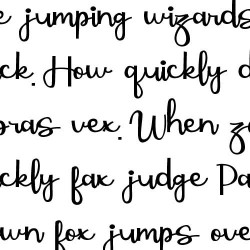 e jumping wizards
ck. How quickly d
bras vex. When z
ckly fax judge Pa
wn fox jumps ove